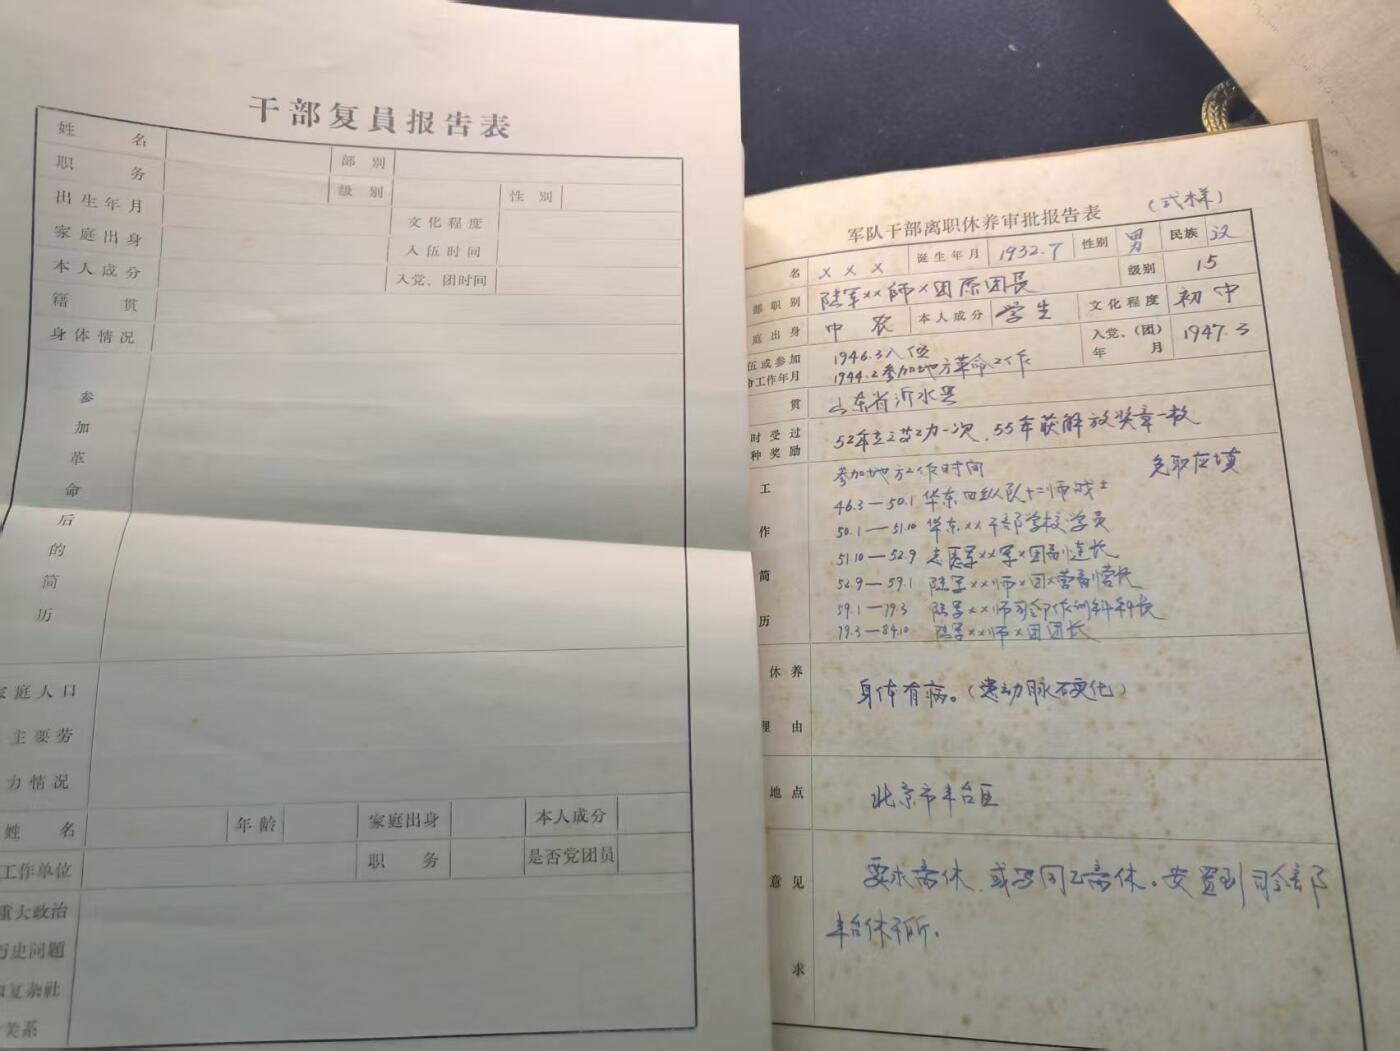 干部复員报告表
姓名 部别
职务 级别 性别
出生年月 文化程度
家庭出身 入伍时间
本人成分 入党、团时间
籍贯
身体情况
参加革命后的简历
家庭人口
主要劳
力情况
姓名 年龄 家庭出身 本人成分
工作单位 职务 是否党团员
重大政治
历史问题
和复杂社
关系
军队干部离职休养审批报告表 (式样)
名 ××× 诞生年月 1932.7 性别 男 民族 汉
部职别 陆军××师×团原团长 级别 15
庭出身 中农 本人成分 学生 文化程度 初中
伍或参加 1946.3入伍 入党、(团) 1947.3
命工作年月 1944.2参加地方革命工作 年月
贯 山东省沂水县
时受过 52年立三等功一次、55年获解放奖章一枚
种奖励
工作简历
参加地方工作时间 免职应填
46.3—50.1 华东四纵队十二师战士
50.1—51.10 华东××干部学校学员
51.10—52.9 志愿军××军×团副连长
52.9—59.1 陆军××师×团×营副营长
59.1—79.3 陆军××师司令部作训科科长
79.3—84.10 陆军××师×团团长
休养
理由 身体有病。(患动脉硬化)
地点 北京市丰台区
意见 要求离休,或写同意离休。安置到司令部
丰台休干所。
求